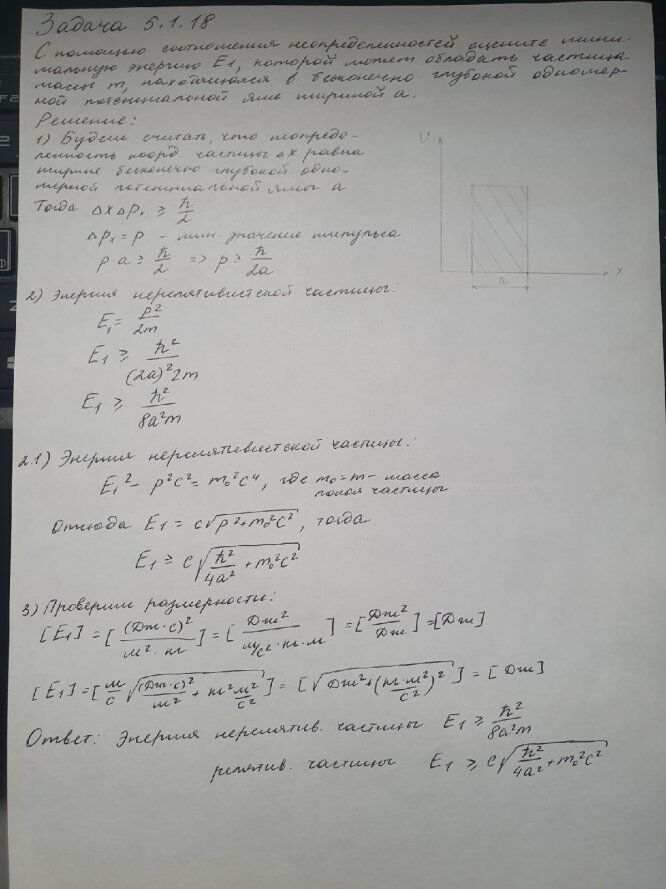 Задача 5.1.18
С помощью соотношения неопределенностей оцените мини-
мальную энергию E1, которой может обладать частица
массы m, находящаяся в бесконечно глубокой одномер-
ной потенциальной яме шириной a.
Решение:
1) Будем считать, что неопреде-
ленность коорд частицы Δx равна
ширине бесконечно глубокой одно-
мерной потенциальной ямы a
Тогда Δx Δpx ≥ ħ/2
Δpx = p - мин. значение импульса
p·a ≥ ħ/2 => p ≥ ħ/2a
U
x
a
2) Энергия нерелятивистской частицы:
E1 = p²/2m
E1 ≥ ħ²/(2a)²2m
E1 ≥ ħ²/8a²m
2.1) Энергия нерелятивистской частицы:
E1² - p²c² = m0²c⁴, где m0 = m - масса
покоя частицы
Отсюда E1 = c√(p²+m0²c²), тогда
E1 ≥ c√(ħ²/4a² + m0²c²)
3) Проверим размерность:
[E1] = [(Дж·с)²/м²·кг] = [Дж²/м/с²·кг·м] = [Дж²/Дж] = [Дж]
[E1] = [м/с √((Дж·с)²/м² + кг²м²/с²)] = [√(Дж²+(кг·м²/с²)²)] = [Дж]
Ответ: Энергия нерелятив. частицы E1 ≥ ħ²/8a²m
релятив. частицы E1 ≥ c√(ħ²/4a² + m0²c²)